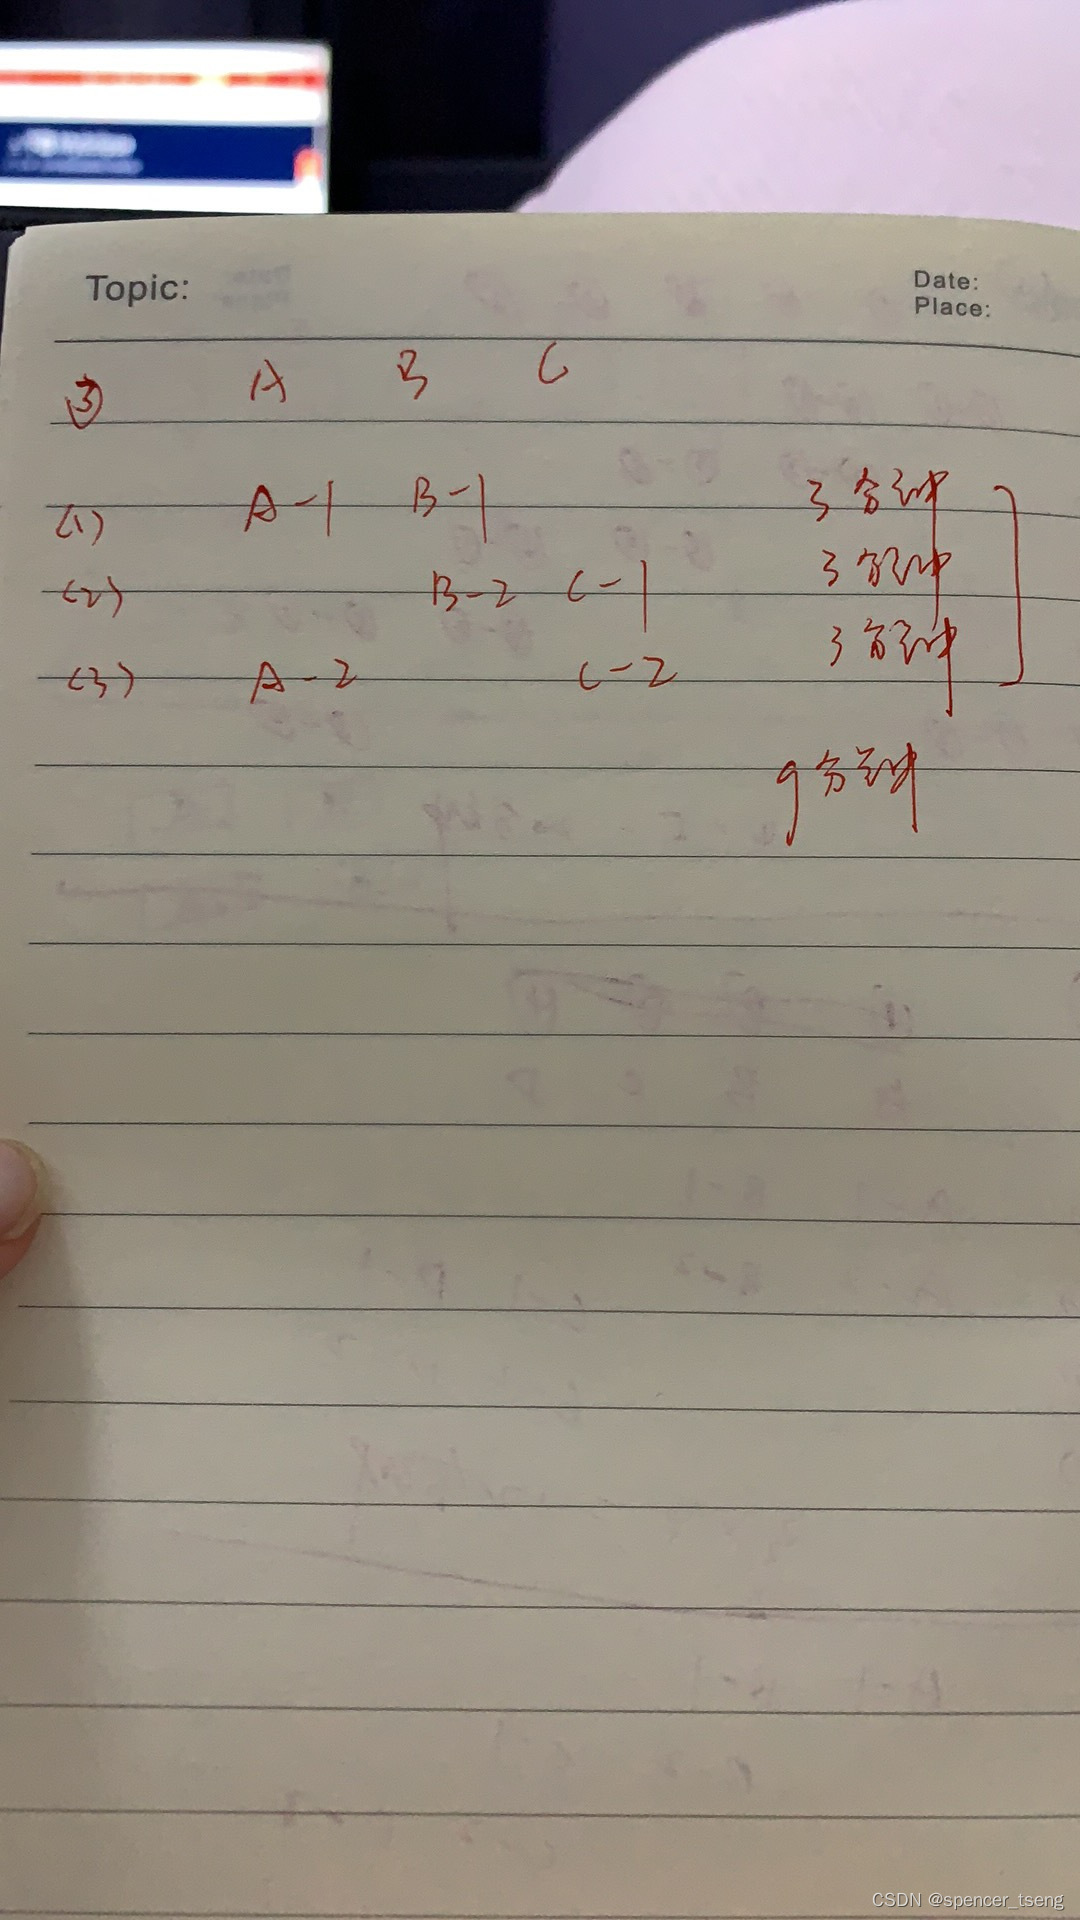 Topic:
Date:
Place:
③ A B C
(1) A-1 B-1 3分钟
(2) B-2 C-1 3分钟
(3) A-2 C-2 3分钟
9分钟
CSDN @spencer_tseng